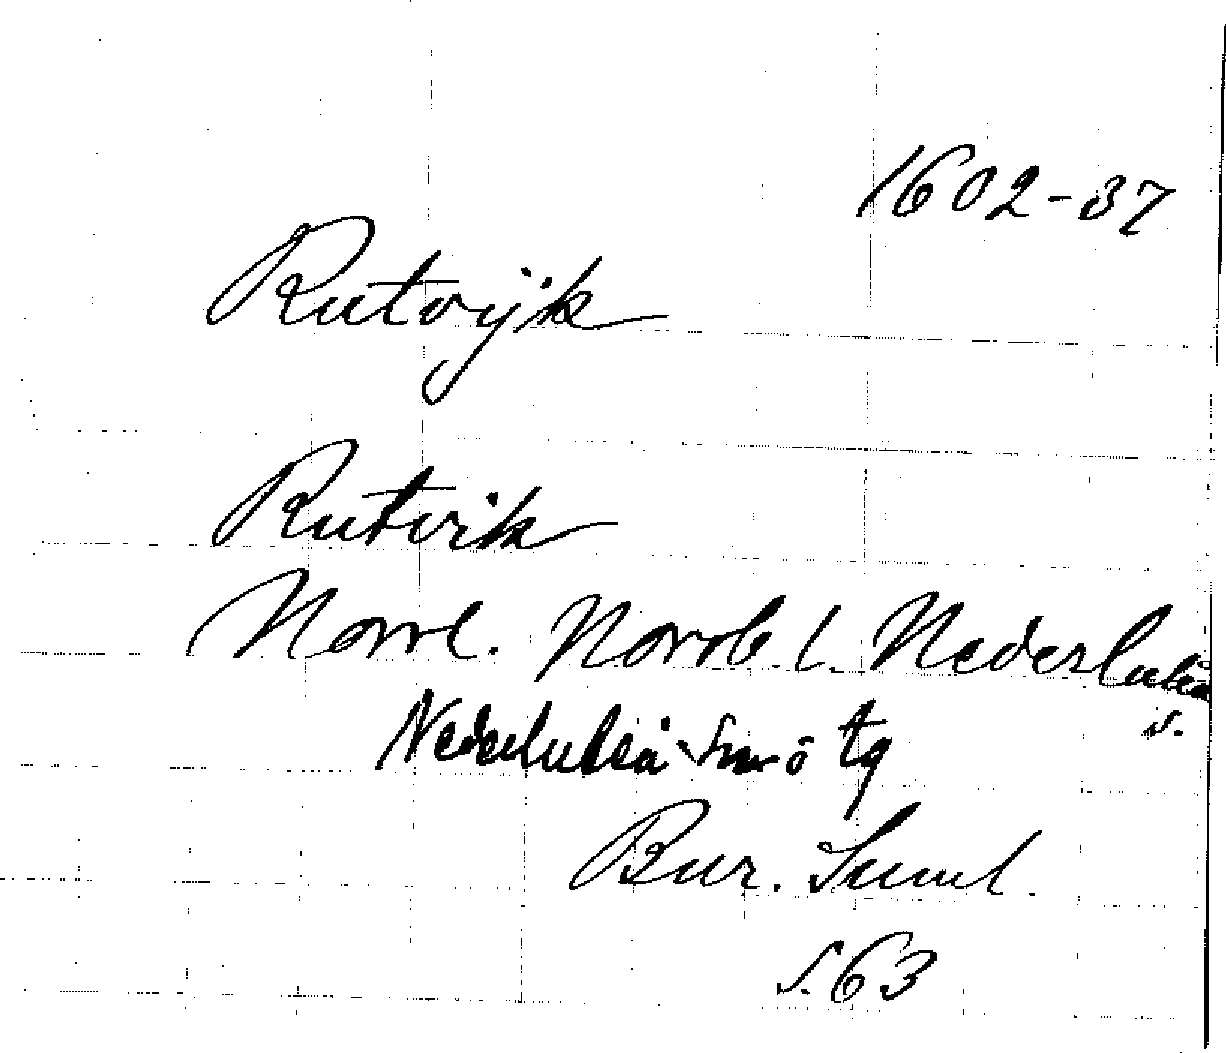 1602-37
Rutvijk
Rutvik
Norrl. Norrb l. Nederluleå
s.
Nederluleå
Bur. Suml.
s. 63